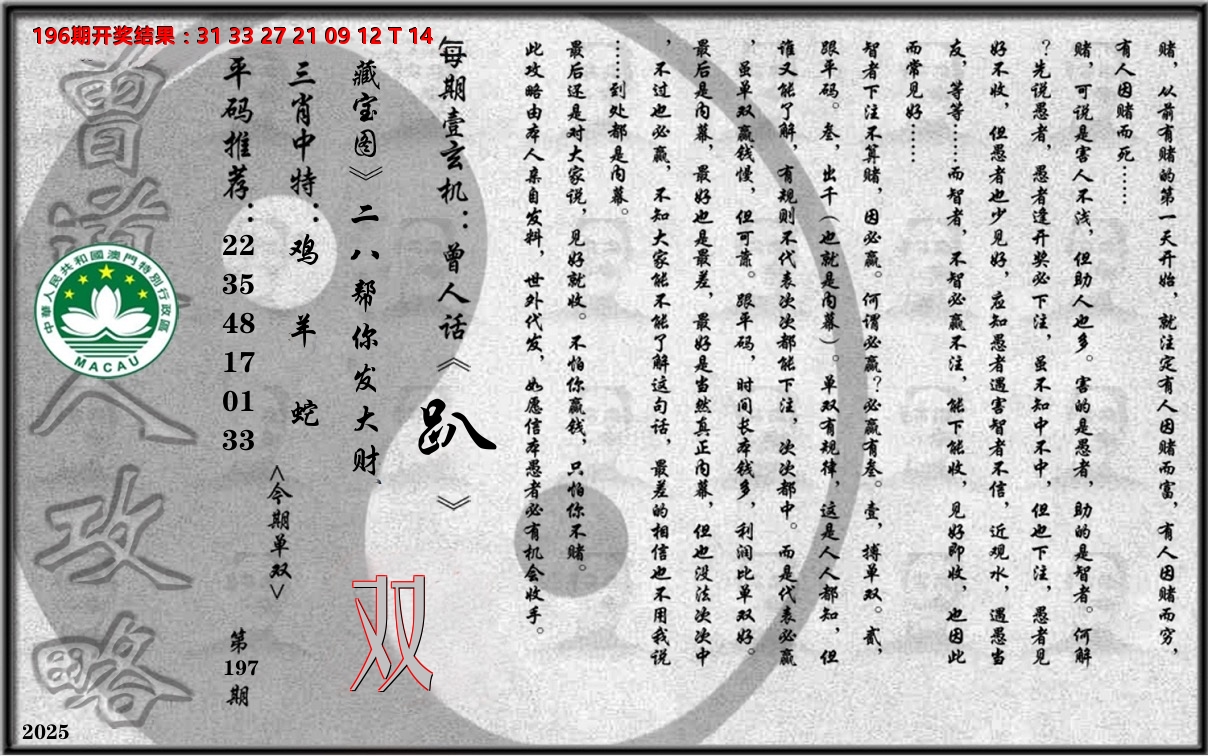 196期开奖结果：31 33 27 21 09 12 T 14
赌，从前有赌的第一天开始，就注定有人因赌而富，有人因赌而穷，
有人因赌而死……
赌，可说是害人不浅，但助人也多。害的是愚者，助的是智者。何解
？先说愚者，愚者逢开奖必下注，虽不知中不中，但也下注，愚者见
好不收，但愚者也少见好，应知愚者遇害智者不信，近观水，遇愚当
友，等等……而智者，不智必赢不注，能下能收，见好即收，也因此
而常见好……
智者下注不算赌，因必赢。何谓必赢？必赢有叁。壹，搏单双。贰，
跟平码。叁，出千（也就是内幕）。单双有规律，这是人人都知，但
谁又能了解，有规则不代表次次都能下注，次次都中。而是代表必赢
，虽单双赢钱慢，但可靠。跟平码，时间长本钱多，利润比单双好。
最后是内幕，最好也是最差，最好是当然真正内幕，但也没法次次中
，不过也必赢，不知大家能不能了解这句话，最差的相信也不用我说
……到处都是内幕。
最后还是对大家说，见好就收。不怕你赢钱，只怕你不赌。
此攻略由本人亲自发料，世外代发，如愿信本愚者必有机会收手。
每期壹玄机：曾人话《趴》
藏宝图》二八帮你发大财、
双
三肖中特：鸡 羊 蛇
<今期单双>
平码推荐：22 35 48 17 01 33
第197期
曾道人攻略
中華人民共和國澳門特別行政區
MACAU
2025